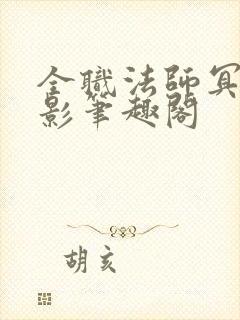 全職法師冥
影筆趣閣
胡亥